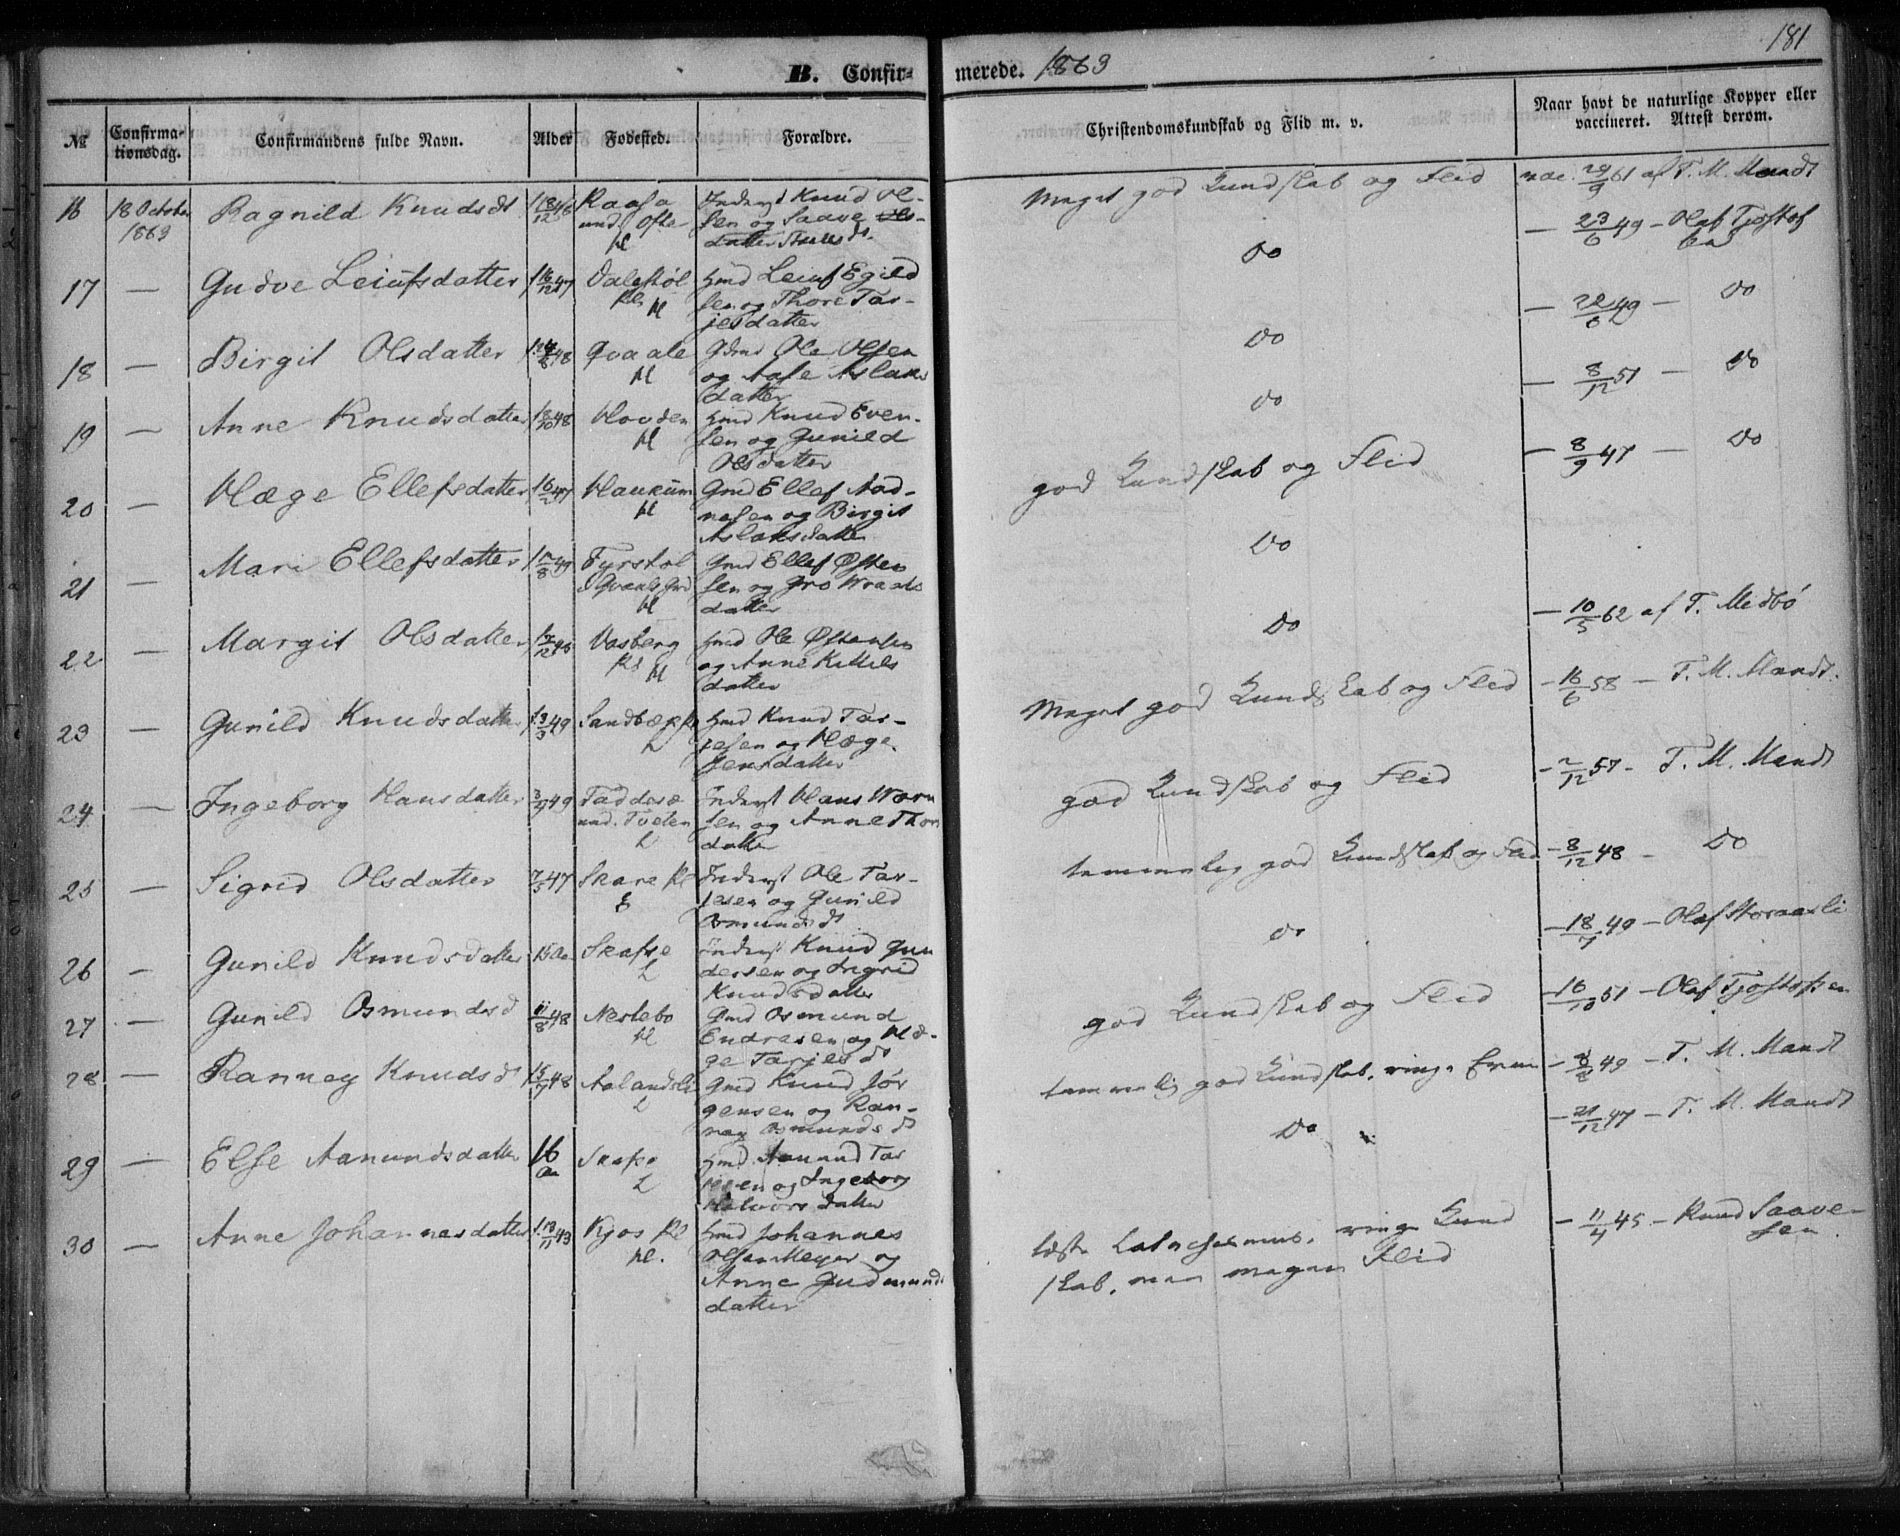 181
B. Confir-
merede. 1863
№
Confirma-
tionsdag.
Confirmandens fulde Navn.
Alder
Fødested.
Forældre.
Christendomskundskab og Flid m. v.
Naar havt de naturlige Kopper eller
vaccineret. Attest derom.
16 18 October Ragnild Knudsdt Inderst Knud Ol-
1863 und. sen og Saave
Meget god Kundskab og Flid 29/9 61 af T. M. Mandt
17 — Gudve Leiufsdatter 16/12 47 Dalestøl Hmd Leiuf Egild
Pl. H sen og Thore Tar-
jesdatter
Do — 23/6 49 – Olaf Tjostof
18 — Birgit Olsdatter Qvaale Gdmd Ole Olsen
H og Aase Aslaks
datter
Do — 22/6 49 — Do
19 — Anne Knudsdatter 48 Hovden Hmd Knud Even-
H sen og Gunild
Olsdatter
Do — 8/12 51 — Do
20 — Hæge Ellefsdatter 47 Haukum Gmd Ellef Aad-
H nesen og Birgit
Aslaksdatter
god Kundskab og Flid — 8/9 47 — Do
21 — Mari Ellefsdatter Tyrstøl Gmd Ellef Østen
H sen og Gro Wraals
datter
Do
22 — Margit Olsdatter Vasberg Hmd Ole Østensen
Pl H og Anne Kittils
datter
Do — 10/5 62 af T. Medbö
23 — Gunild Knudsdatter 49 Hmd Knud Tar-
L jesen og Hæge
Jensdatter
Meget god Kundskab og Flid – 16/6 58 – T. M. Mandt.
24 — Ingeborg Hansdatter 49 Inderst Hans
und. Tveten sen og Anne Thor
L datter
god Kundskab og Flid – 2/12 57 – T. M. Mandt
25 — Sigrid Olsdatter 7/5 47 Skare Pl Inderst Ole Tar-
jesen og Gunild
Osmundsdt
temmelig god Kundskab og Flid – 8/12 48 – Do
26 — Gunild Knudsdatter 15 Aa Skafse Inderst Knud Gun
L dersen og Ingrid
Knudsdatter
Do – 18/7 49 – Olaf Storaasli
27 — Gunild Osmundsd 11/8 48 Neslebø Gmd Osmund
H Endresen og Hæ-
ge Tarjesdt
god Kundskab og Flid – 16/10 51 – Olaf Tjostofsen
28 — Ranney Knudsdt 15/7 48 Aalandsli Gmd Knud Jør
L gensen og Ran-
ney Osmundsdt
temmelig god Kundskab, ringe Evne 49 – T. M. Mandt
29 — Else Aanundsdatter 16 Aa Skafse Hmd. Aanund Tar
L jesen og Ingeborg
Halvorsdatter
Do – 21/12 47 – T. M. Mandt
30 — Anne Johannesdatter Kjos Pl Hmd Johannes
H. Olsen Meyer og
Anne Gudmunds
datter
læste Catechismus, ringe Kund – 11/4 45 – Knud Saave-
skab, men megen Flid sen.